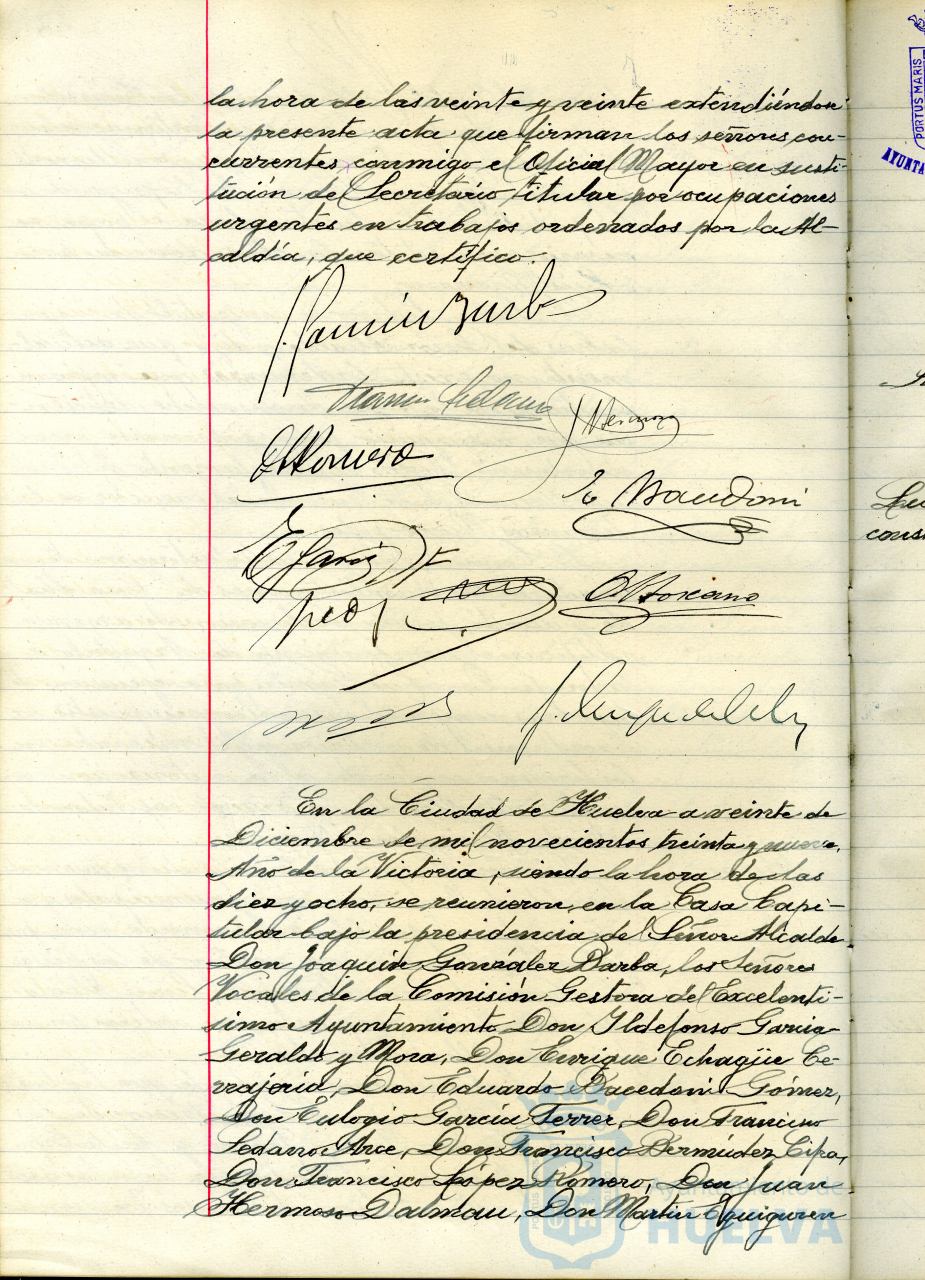 la hora de las veinte y veinte extendiéndose
la presente acta que firman los señores con-
currentes conmigo el Oficial Mayor en susti-
tución de Secretario titular por ocupaciones
urgentes en trabajos ordenados por la Al-
caldía, que certifico.
E. Bacedoni
En la Ciudad de Huelva a veinte de
Diciembre de mil novecientos treinta y nueve,
Año de la Victoria, siendo la hora de las
diez y ocho, se reunieron en la Casa Capi-
tular bajo la presidencia del Señor Alcalde
Don Joaquín González Barba, los Señores
Vocales de la Comisión Gestora del Excelentí-
simo Ayuntamiento Don Ildefonso García
Geraldo y Mora, Don Enrique Echagüe Ce-
rrajería, Don Eduardo Bacedoni Gómez,
Don Eulogio García Ferrer, Don Francisco
Sedano Arce, Don Francisco Bermúdez Cipa,
Don Francisco López Romero, Don Juan
Hermoso Dalmau, Don Martín Eguiguren
Ayuntamiento de
HUELVA
PORTUS MARIS
AYUNTA
cons